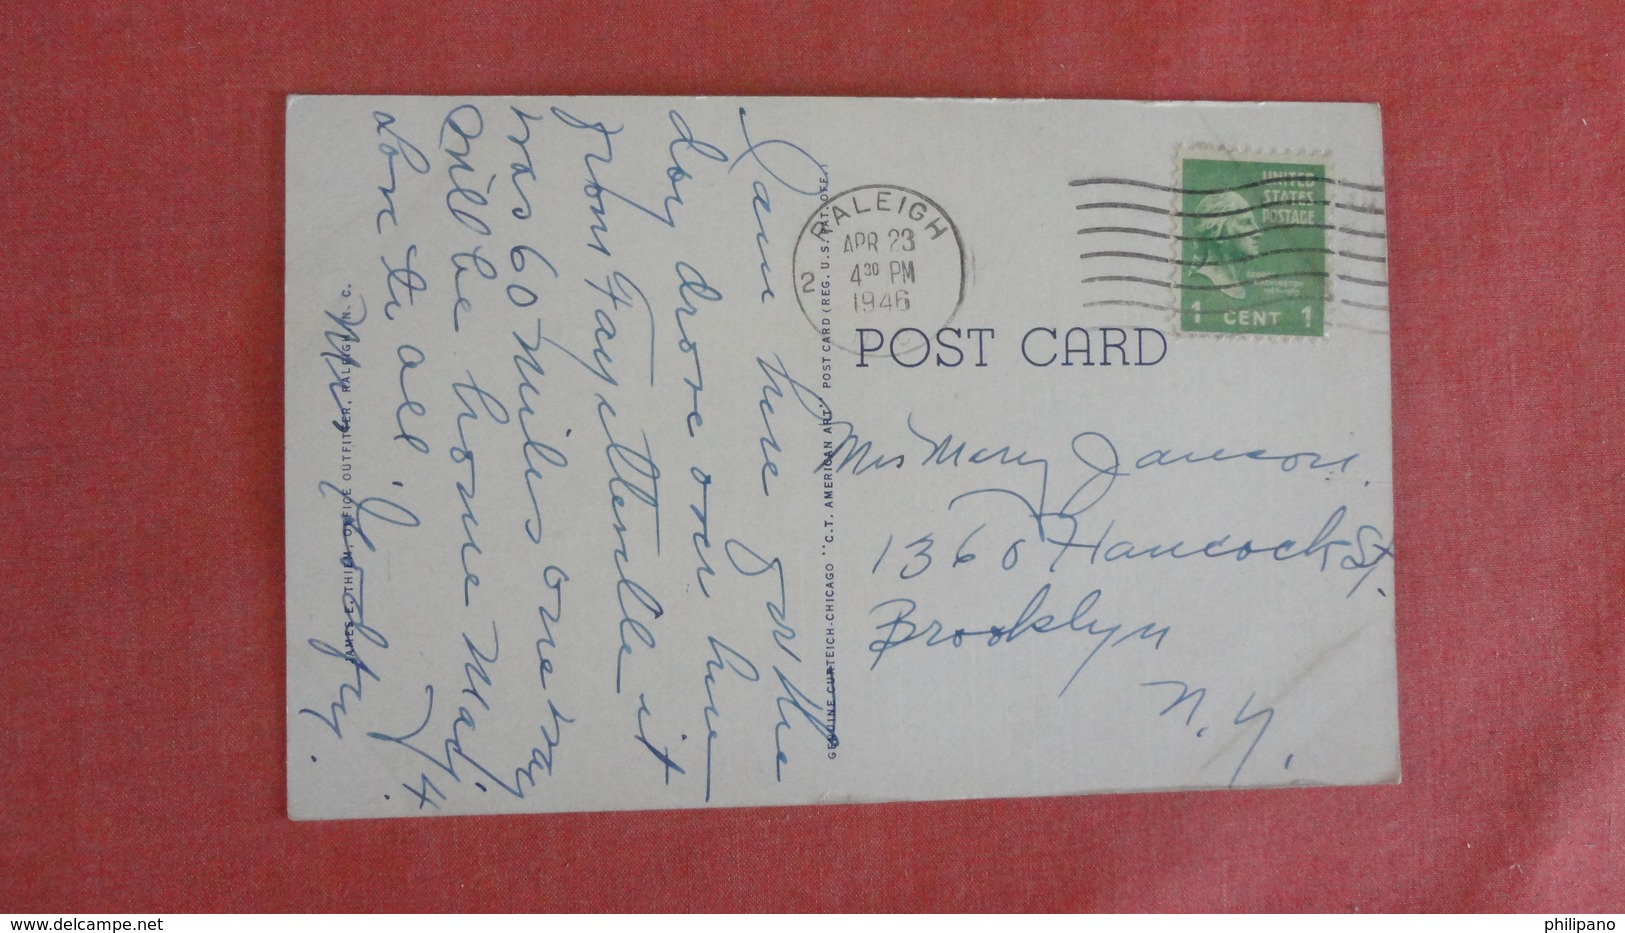 I am here for the
day drove over here
from Fayetteville it
was 60 miles one way
Will be home Wed.
Love to all.
RALEIGH
APR 23
4 30 PM
1946
2
UNITED
STATES
POSTAGE
1 CENT 1
POST CARD
Mrs Mary Janson.
1360 Hancock St.
Brooklyn
N. Y.
GENUINE CURTEICH-CHICAGO "C.T. AMERICAN ART" POST CARD (REG. U.S. PAT. OFF.)
JAMES E. THIEM, OFFICE OUTFITTER, RALEIGH, N. C.
philipano
www.delcampe.net